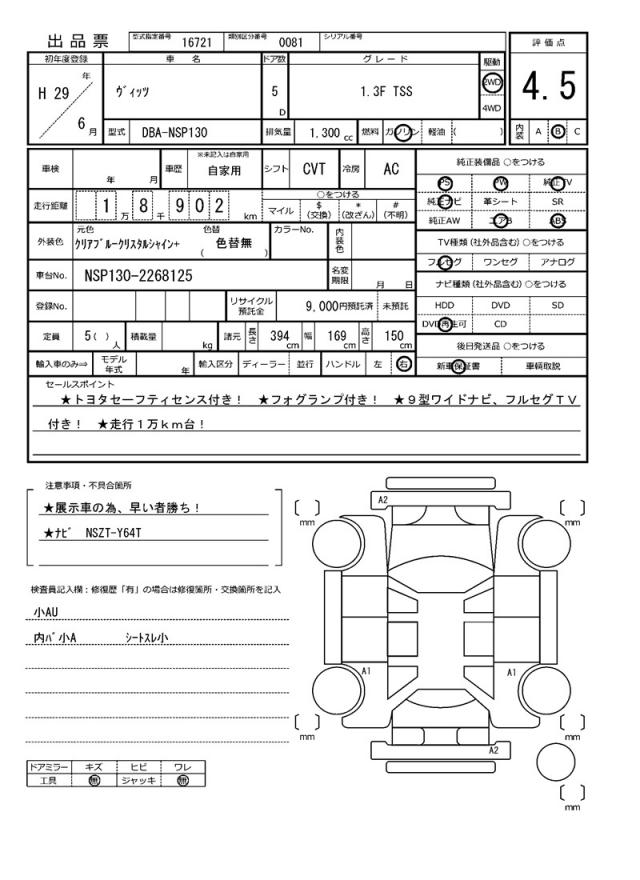 出品票 型式指定番号 16721 類別区分番号 0081 シリアル番号
初年度登録 車名 ドア数 グレード 駆動 評価点
H 29 年 6 月 ヴィッツ 5 D 1.3F TSS 2WD 4WD 4.5
型式 DBA-NSP130 排気量 1.300 cc 燃料 ガソリン 軽油 ( ) 内装 A B C
車検 年 月 車歴 ※未記入は自家用 自家用 シフト CVT 冷房 AC 純正装備品 ○をつける
PS PW 純正TV
走行距離 1 万 8 千 9 0 2 km ○をつける 純正ナビ 革シート SR
マイル $ (交換) * (改ざん) # (不明) 純正AW エアB ABS
外装色 元色 クリアブルークリスタルシャイン+ 色替 ( 色替無 ) カラーNo. 内装色 TV種類 (社外品含む) ○をつける
フルセグ ワンセグ アナログ
車台No. NSP130-2268125 名変期限 月 日 ナビ種類 (社外品含む) ○をつける
登録No. リサイクル預託金 9,000円預託済 未預託 HDD DVD SD
DVD再生可 CD
定員 5( ) 人 積載量 kg 諸元 長さ 394 cm 幅 169 cm 高さ 150 cm 後日発送品 ○をつける
輸入車のみ⇒ モデル年式 年 輸入区分 ディーラー 並行 ハンドル 左 右 新車保証書 車輌取説
セールスポイント
★トヨタセーフティセンス付き! ★フォグランプ付き! ★9型ワイドナビ、フルセグTV
付き! ★走行1万km台!
注意事項・不具合箇所
★展示車の為、早い者勝ち!
★ナビ NSZT-Y64T
検査員記入欄:修復歴「有」の場合は修復箇所・交換箇所を記入
小AU
内バ小A シートスレ小
ドアミラー キズ ヒビ ワレ
工具 無 ジャッキ 無
A2
mm mm
A1 A1
mm mm
A2
mm